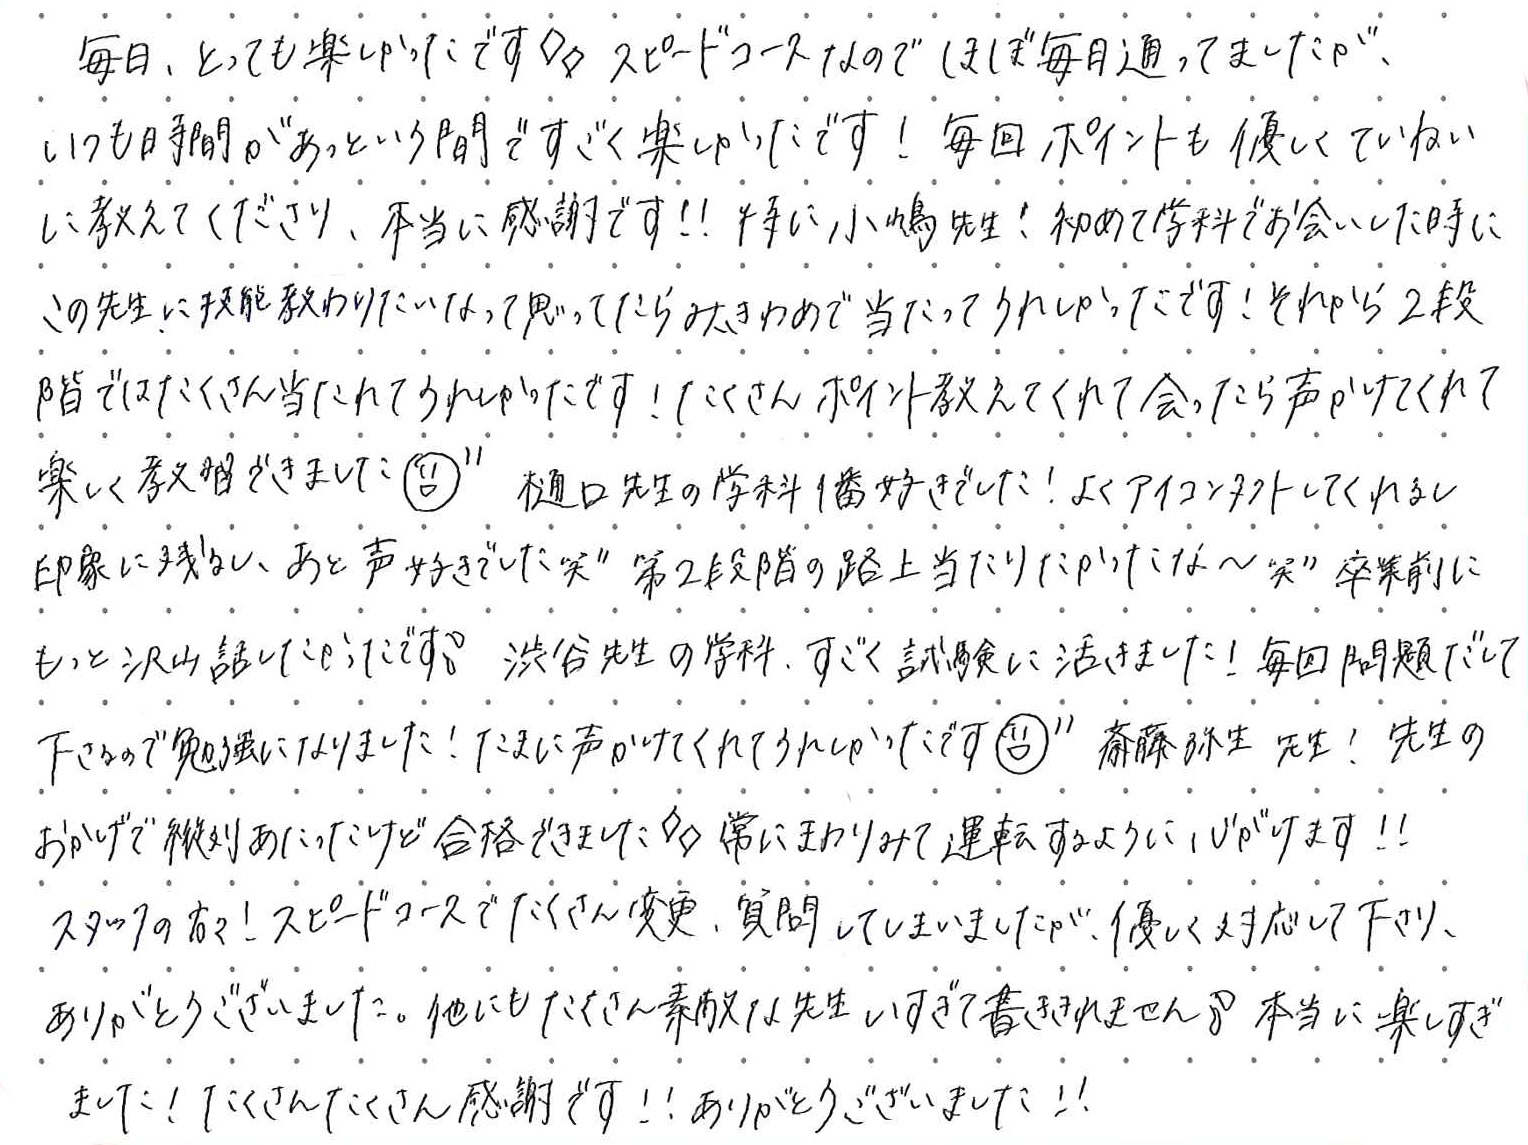 毎日、とっても楽しかったです◇◇ スピードコースなので ほぼ毎日通ってましたが、
いつも時間があっという間ですごく楽しかったです！ 毎回 ポイントも 優しくていねい
に教えてくださり、本当に感謝です!! 特に小嶋先生！初めて学科でお会いした時に
この先生に技能教わりたいなって思ってたらみきわめで当たってうれしかったです！それから2段
階ではたくさん当たれてうれしかったです！たくさん ポイント教えてくれて会ったら声かけてくれて
楽しく教習できました" 樋口先生の学科1番好きでした！よくアイコンタクトしてくれるし
印象に残るし、あと声好きでした笑" 第2段階の路上当たりたかったな〜笑" 卒業前に
もっと沢山話したかったです 渋谷先生の学科、すごく試験に活きました！毎回問題だして
下さるので勉強になりました！たまに声かけてくれてうれしかったです" 斎藤弥生先生！先生の
おかげで縦列あたったけど合格できました◇◇ 常にまわりみて運転するように心がけます!!
スタッフの方々！スピードコースでたくさん変更、質問してしまいましたが、優しく対応して下さり、
ありがとうございました。他にもたくさん素敵な先生いすぎて書ききれません 本当に楽しすぎ
ました！たくさんたくさん感謝です!! ありがとうございました!!